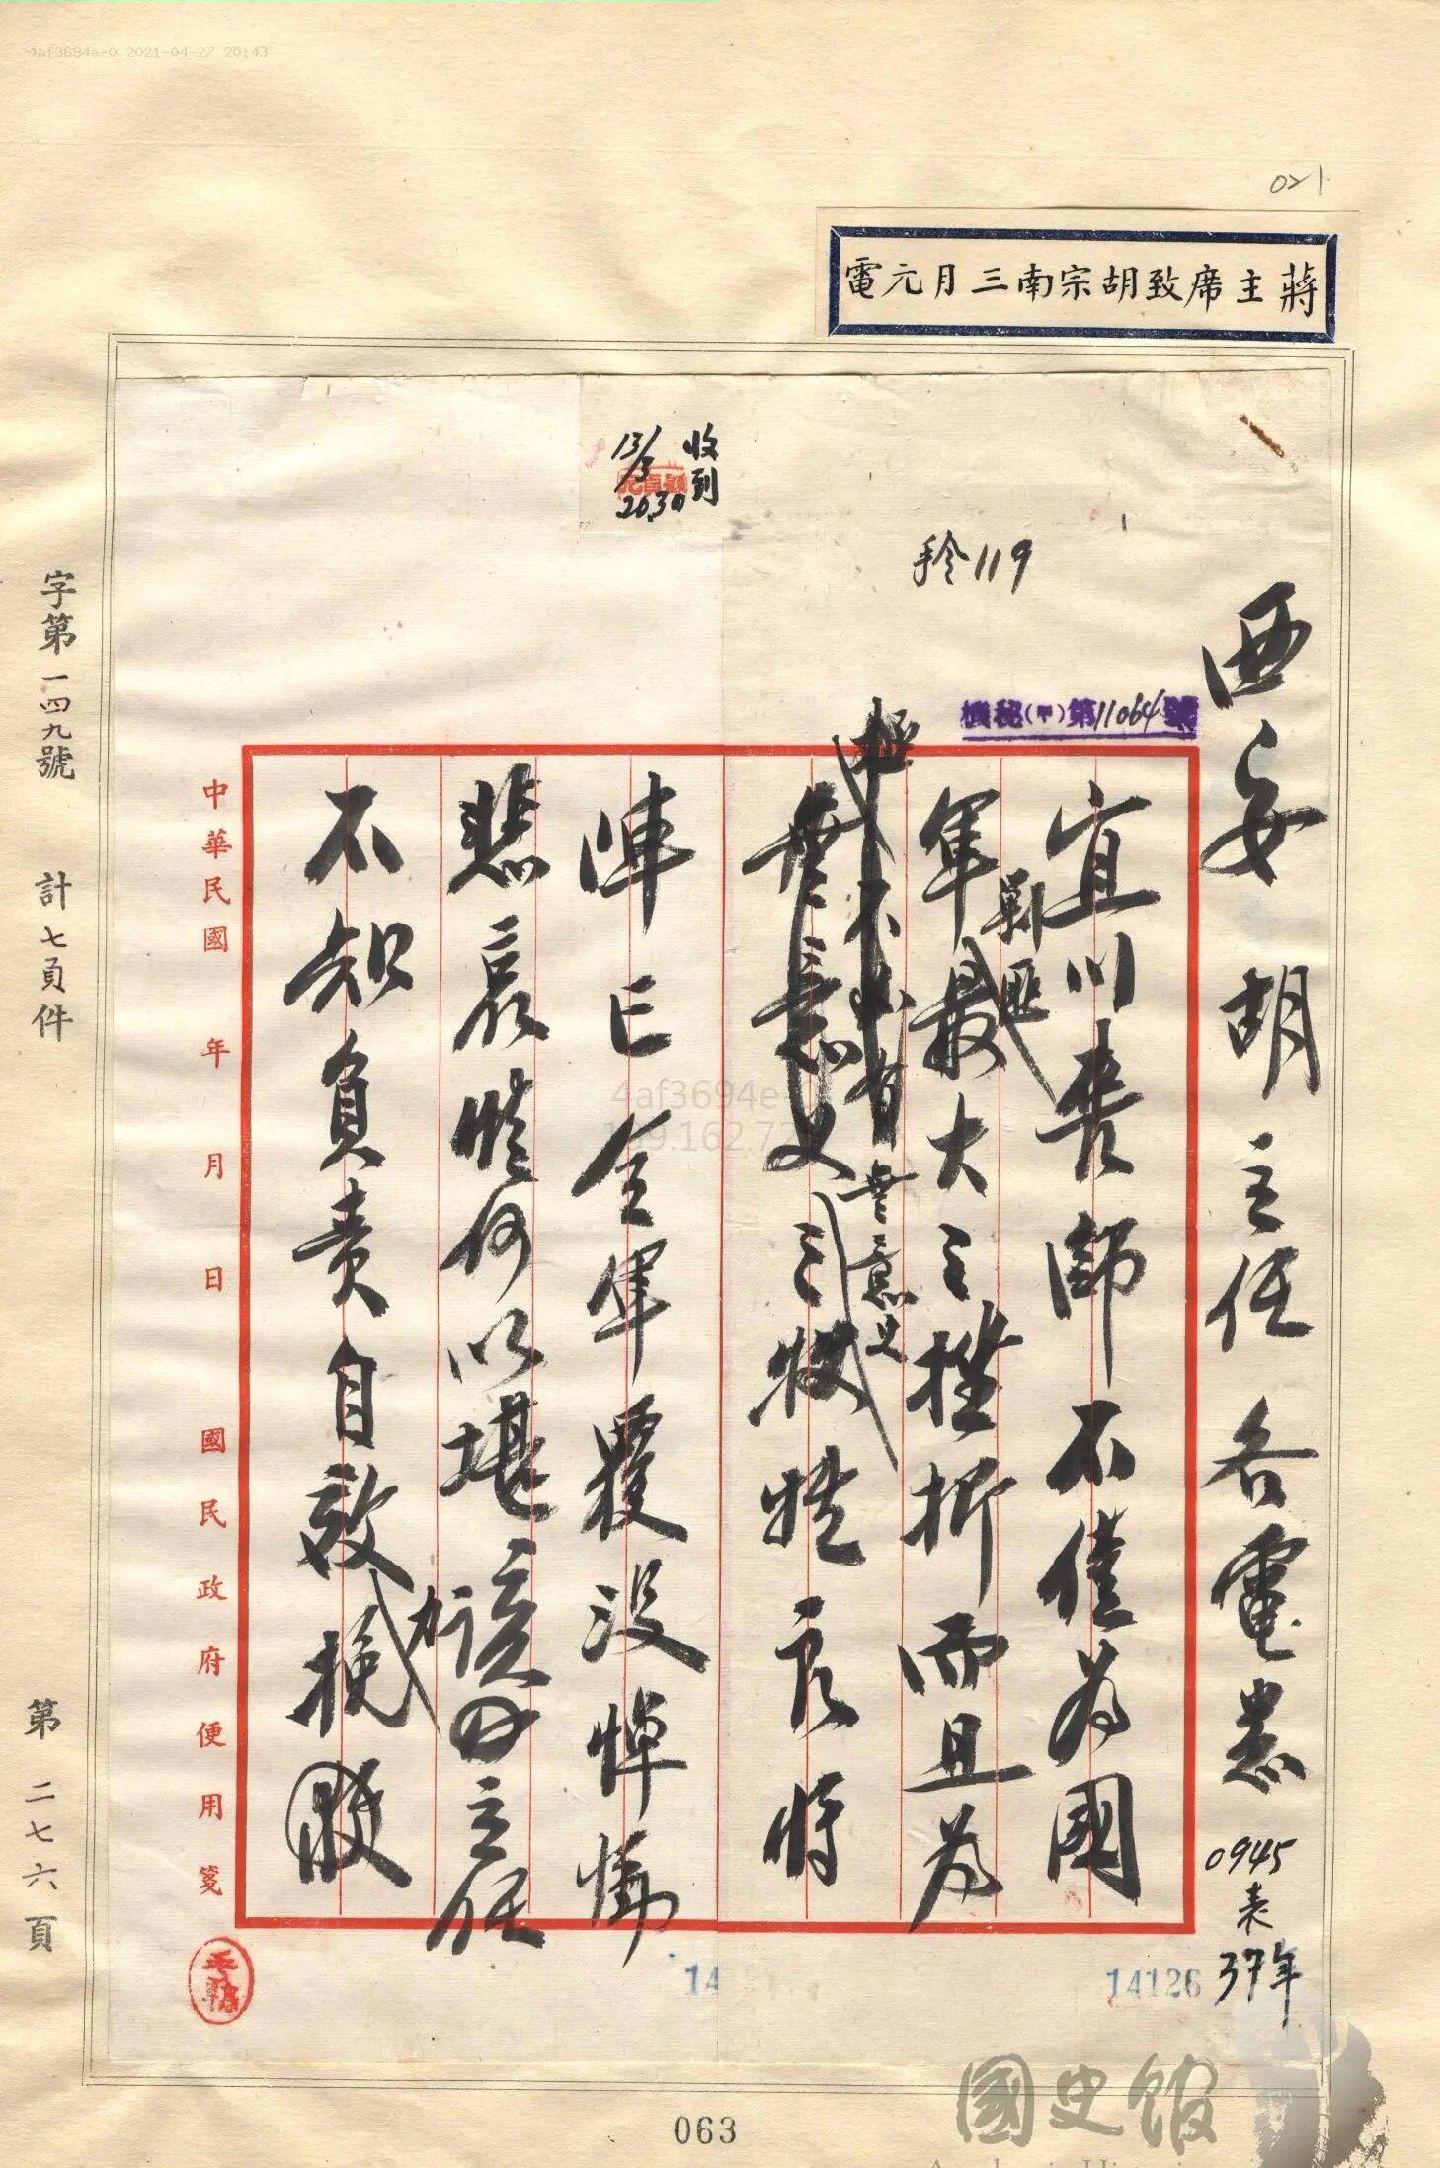 4af3694e-0 2021-04-27 20:43
021
蔣主席致胡宗南三月元電
收到
13/3
2030
手令119
機秘(甲)第11064號
西安胡主任各電悉
0945
表
37年
宜川喪師不僅為國
軍剿匪最大之挫折而且為
無意義之犧牲良將
無意義
陣亡全軍覆沒悼慟
悲哀情何以堪該主任
不知負責自效挽
中華民國 年 月 日 國民政府便用箋
字第一四九號 計七頁件 第二七六頁
4af3694e
14126
14
063
國史館